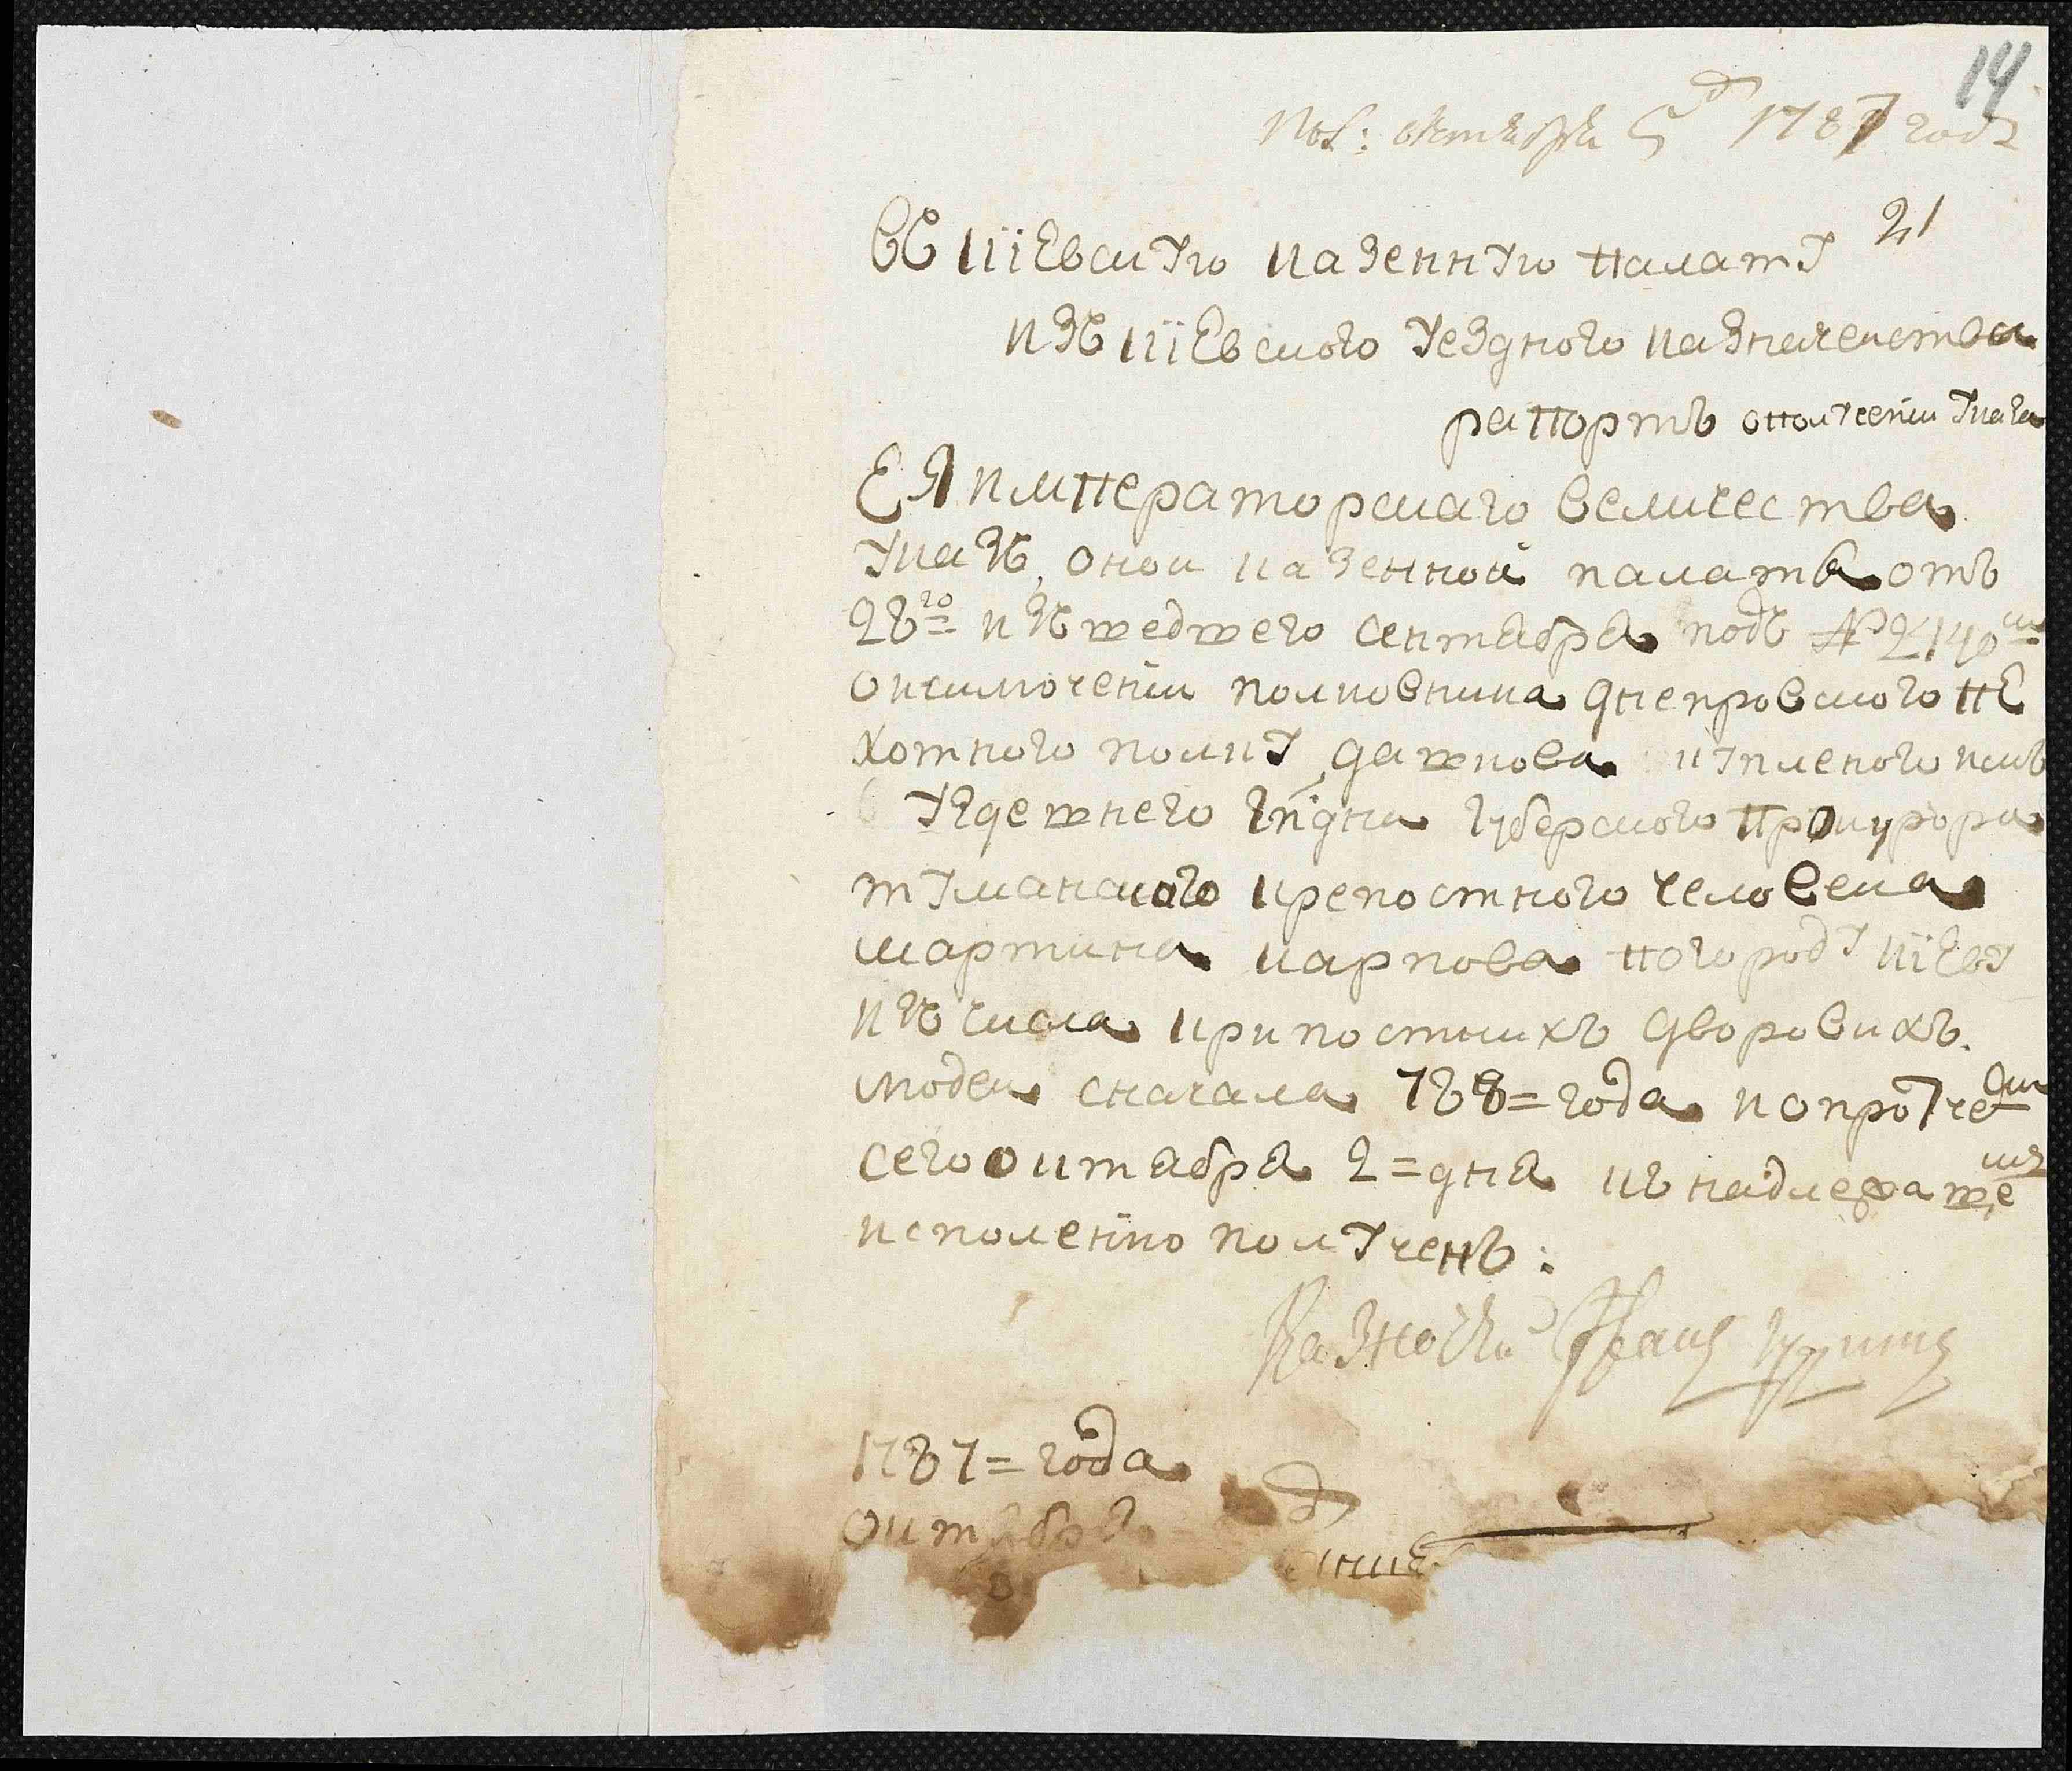 14
Пол: октября 5 д 1787 года
21
Въ кіевскую казенную палату
изъ кіевского уездного казначейства
рапортъ ополученіи указа
ЕЯ императорскаго величества
указъ, оной казенной палаты отъ
28го изшедшего сентября подъ № 2140мъ
оисключеніи полковника днепровского пе
хотного полку, дашкова купленого имъ
у здешнего гпдна губерского прокурора
туманского крепостного человека
мартина карпова погороду кіеву
изъ числа крипостнихъ дворовихъ.
людей сначала 788= года копро7че
сего октября 2= дня къ надлежаще
му
исполенію полученъ:
Казначей Іванъ
1787= года
октября
д